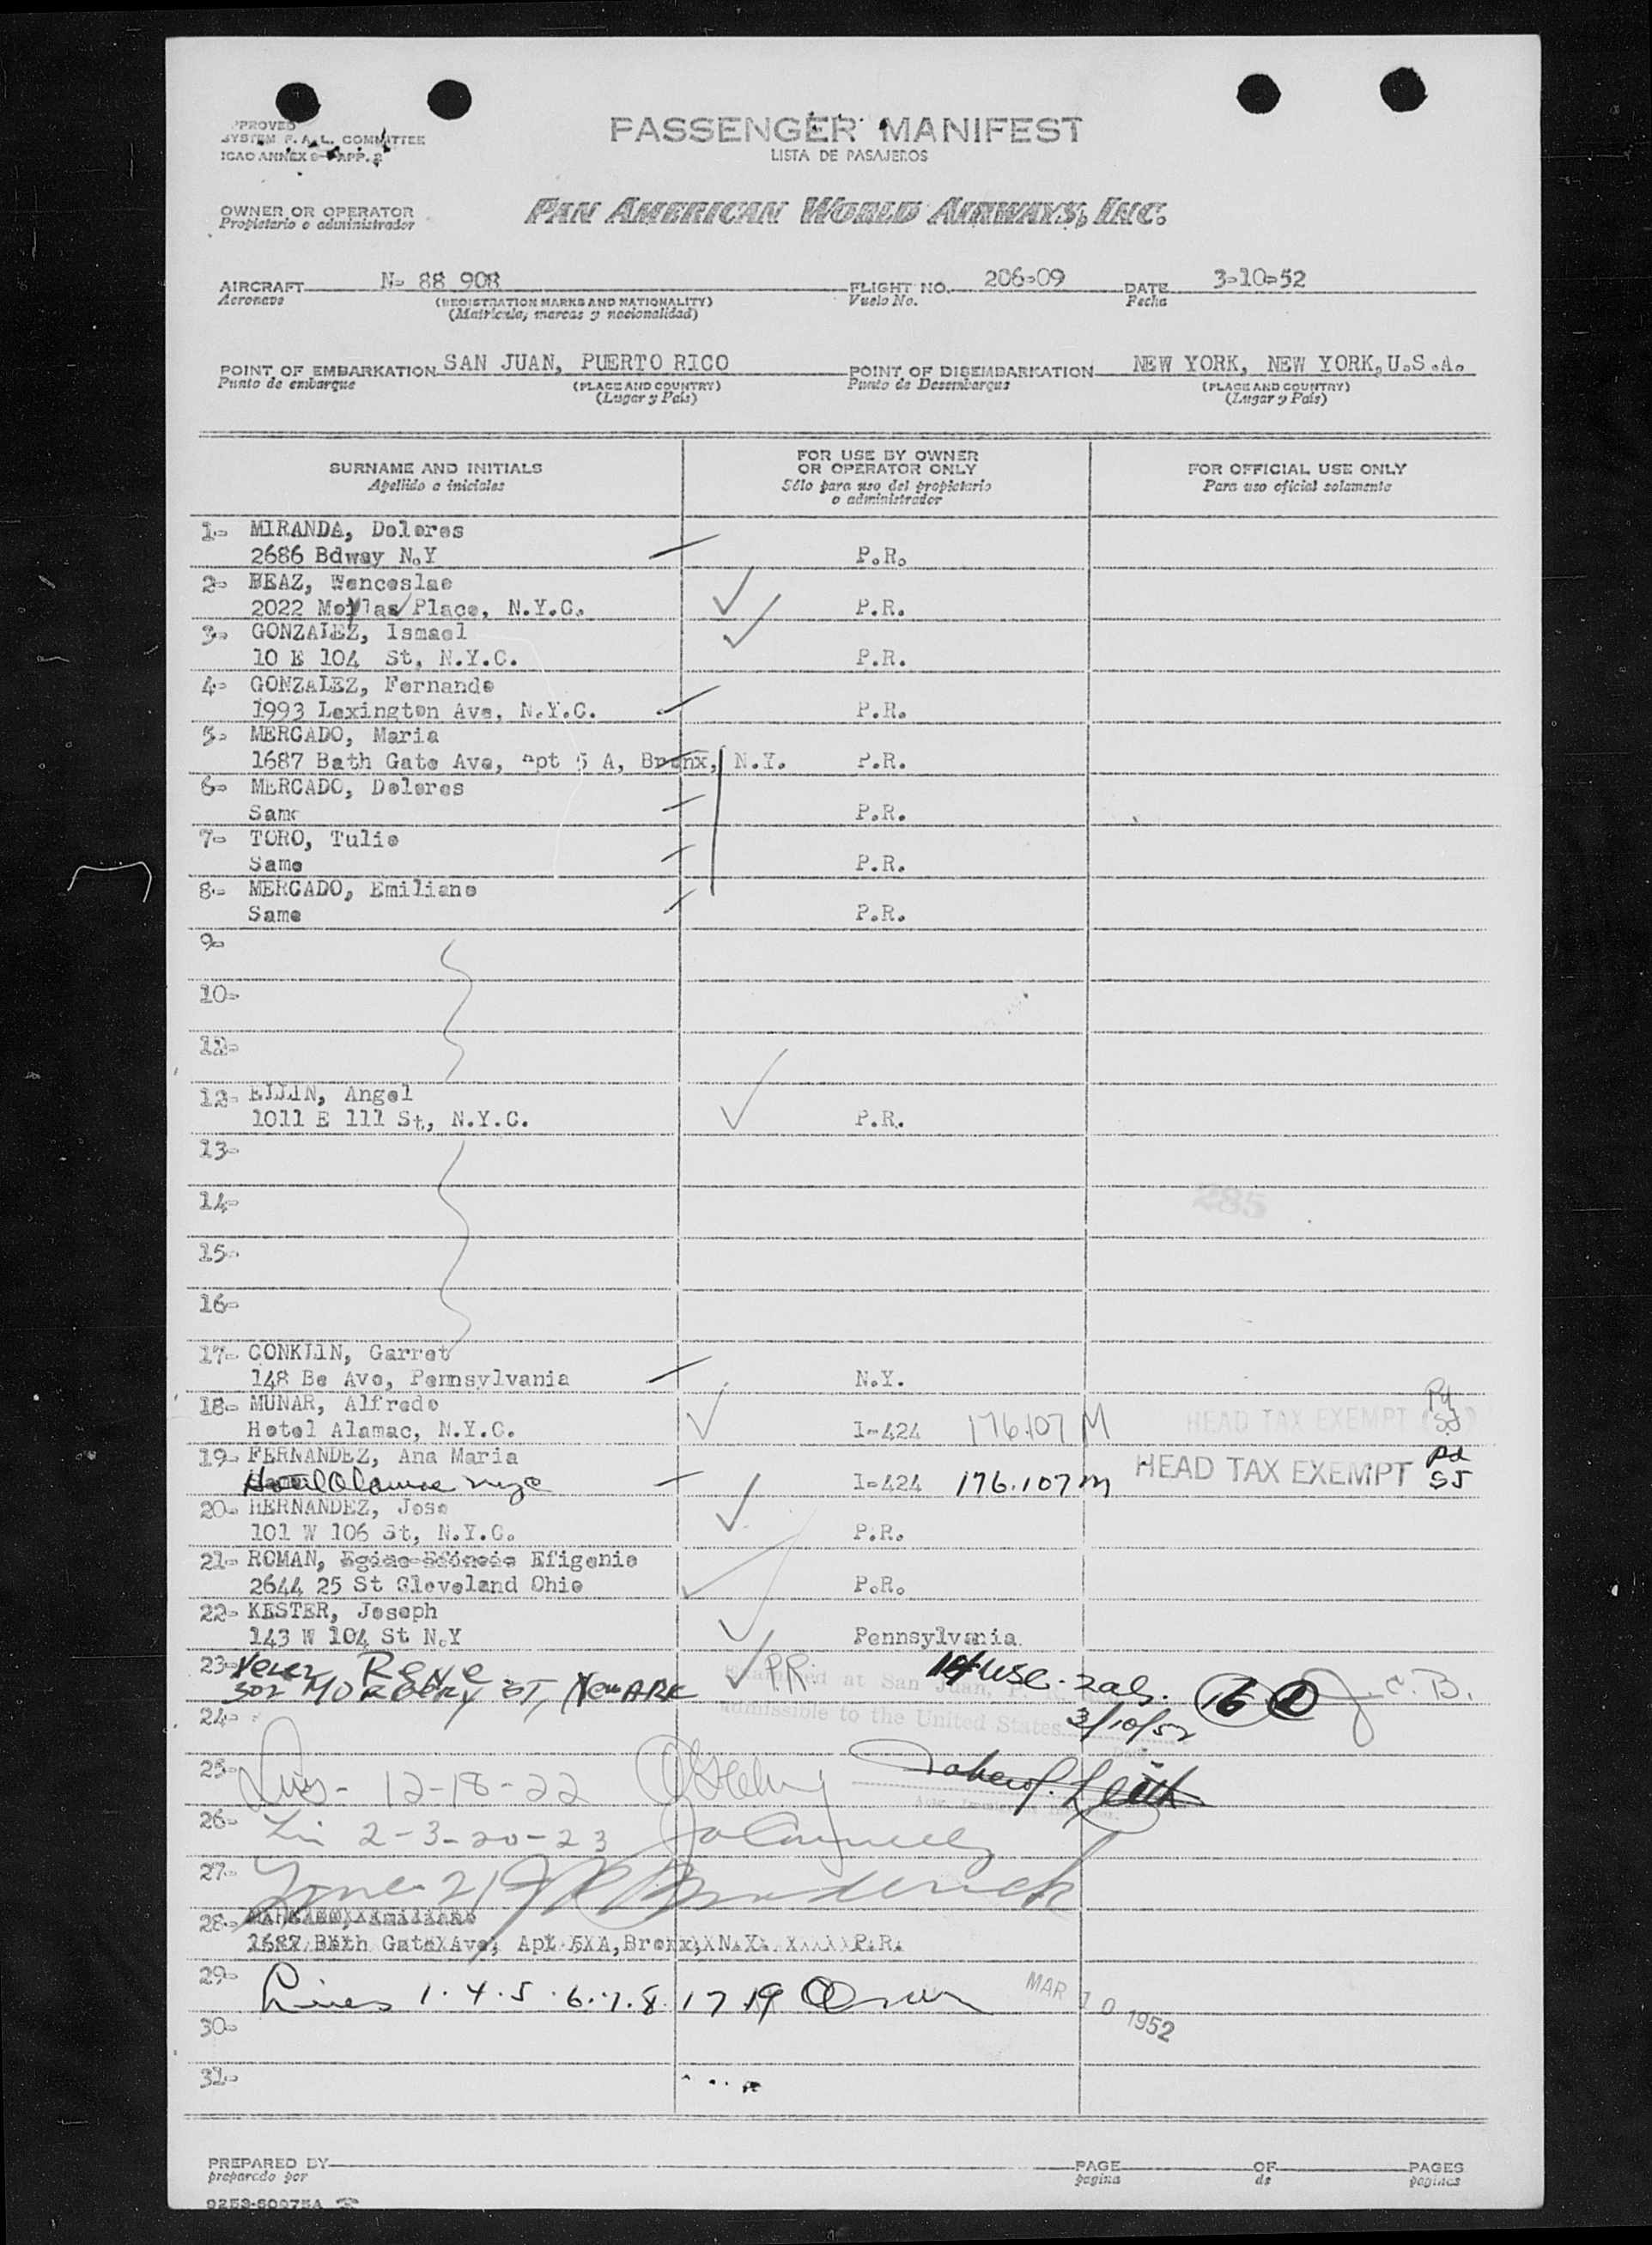 PASSENGER MANIFEST
LISTA DE PASAJEROS
SYSTEM F.A.L. COMMITTEE
ICAO ANNEX 9 APP. 2
OWNER OR OPERATOR
Propietario o administrador
PAN AMERICAN WORLD AIRWAYS, INC.
AIRCRAFT N- 88 908 FLIGHT NO. 206-09 DATE 3-10-52
Aeronave (REGISTRATION MARKS AND NATIONALITY) Vuelo No. Fecha
(Matrícula, marcas y nacionalidad)
POINT OF EMBARKATION SAN JUAN, PUERTO RICO POINT OF DISEMBARKATION NEW YORK, NEW YORK, U.S.A.
Punto de embarque (PLACE AND COUNTRY) Punto de Desembarque (PLACE AND COUNTRY)
(Lugar y País) (Lugar y País)
SURNAME AND INITIALS FOR USE BY OWNER OR OPERATOR ONLY FOR OFFICIAL USE ONLY
Apellido e iniciales Sólo para uso del propietario o administrador Para uso oficial solamente
1- MIRANDA, Dolores
2686 Bdway N.Y P.R.
2- BEAZ, Wenceslao
2022 Place, N.Y.C. P.R.
3- GONZALEZ, Ismael
10 E 104 St, N.Y.C. P.R.
4- GONZALEZ, Fernando
1993 Lexington Ave, N.Y.C. P.R.
5- MERCADO, Maria
1687 Bath Gate Ave, Apt 5 A, Bronx, N.Y. P.R.
6- MERCADO, Dolores
Same P.R.
7- TORO, Tulio
Same P.R.
8- MERCADO, Emiliano
Same P.R.
9-
10-
11-
12- ELLIN, Angel
1011 E 111 St, N.Y.C. P.R.
13-
14-
285
15-
16-
17- CONKLIN, Garret
148 Be Ave, Pennsylvania N.Y.
18- MUNAR, Alfredo
Hotel Alamac, N.Y.C. I-424 176107 M HEAD TAX EXEMPT SJ
19- FERNANDEZ, Ana Maria
Hotel Alamac nyc I-424 176.107 M HEAD TAX EXEMPT Pd SJ
20- HERNANDEZ, Jose
101 W 106 St, N.Y.C. P.R.
21- ROMAN, Efigenio
2644 25 St Cleveland Ohio P.R.
22- KESTER, Joseph
143 W 104 St N.Y Pennsylvania
23- Velez Rene P.R. 14 USC. 2als. 16 J. C. B.
302 MULBERRY ST, NewARK
at San Juan, P. R.
24- admissible to the United States 3/10/52
25- Lins- 12-18-22
26- Lin 2-3-20-23
27- Line 21 Broderick
28- MERCADO, Emiliano
1687 Bath Gate Ave, Apt 5 A, Bronx, N.Y. P.R.
29- Lines 1.4.5.6.7.8.17 19 MAR 10 1952
30-
31-
PREPARED BY PAGE OF PAGES
preparado por pagina de paginas